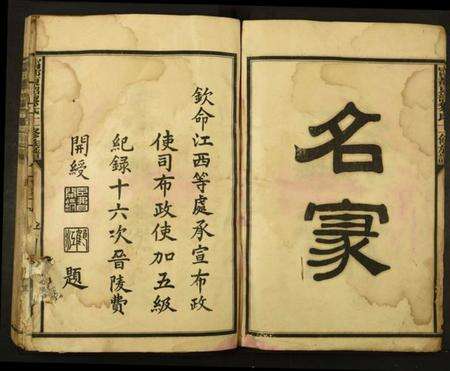 名家
欽命江西等處承宣布政
使司布政使加五級
紀録十六次晉陵費
開綬
題